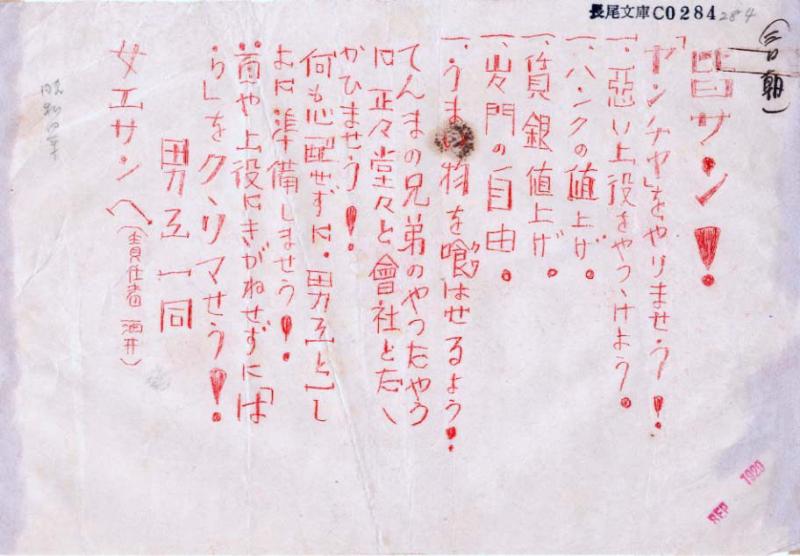 長尾文庫C0284
284
(今朝)
皆サン!
「ヤンチヤ」をやりませう!
一、惡い上役をやつゝけよう。
一、ハンクの値上げ。
一、賃銀値上げ。
一、門の自由。
一、うま物を喰はせるよう!
てんまの兄弟のやつたやう
に正々堂々と會社とたゝ
かひませう!
何も心配せずに、男工と一し
よに準備しませう!
や上役にきがねせずに「は
ら」をクヽリマせう!
男工一同
女工サンへ(責任者 酒井)
昭和四年
REP 1920